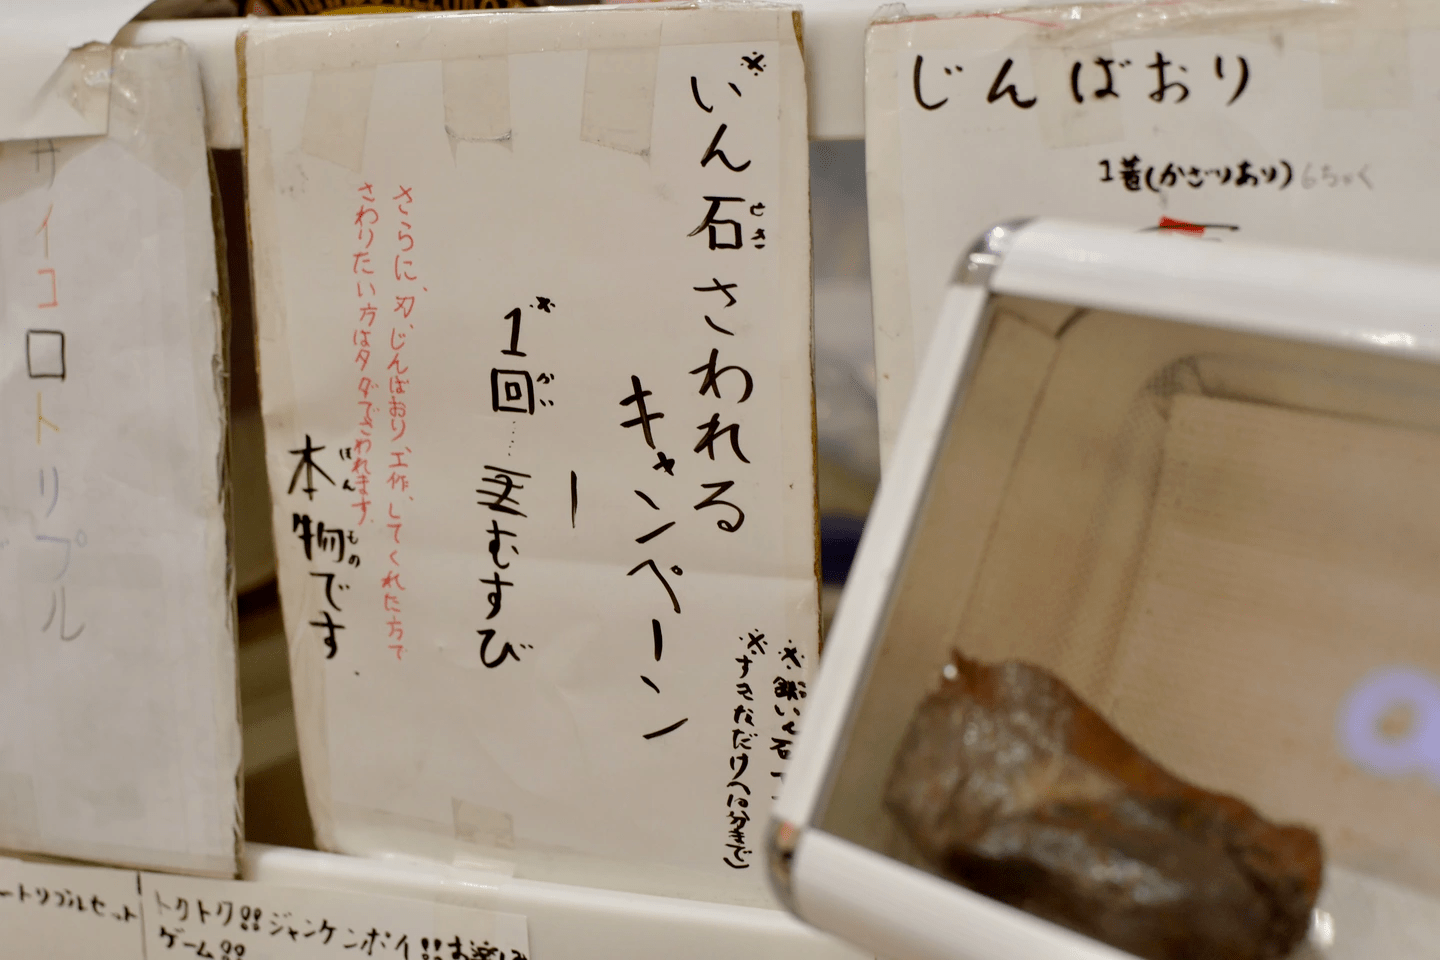 ※いん石さわれる
せき
キャンペーン
※1回……むすび
かい
さらに、刃、じんばおり、工作、してくれた方で
さわりたい方はタダでさわれます。
本物です
ほん
もの
※鉄いん石
※すきなだけ(10分まで)
じんばおり
1着(かざりおり)6ちゃく
サイコロトリプル
ートリプルセット
トクトク!!ジャンケンポイ!!お楽しみ
ゲーム!!